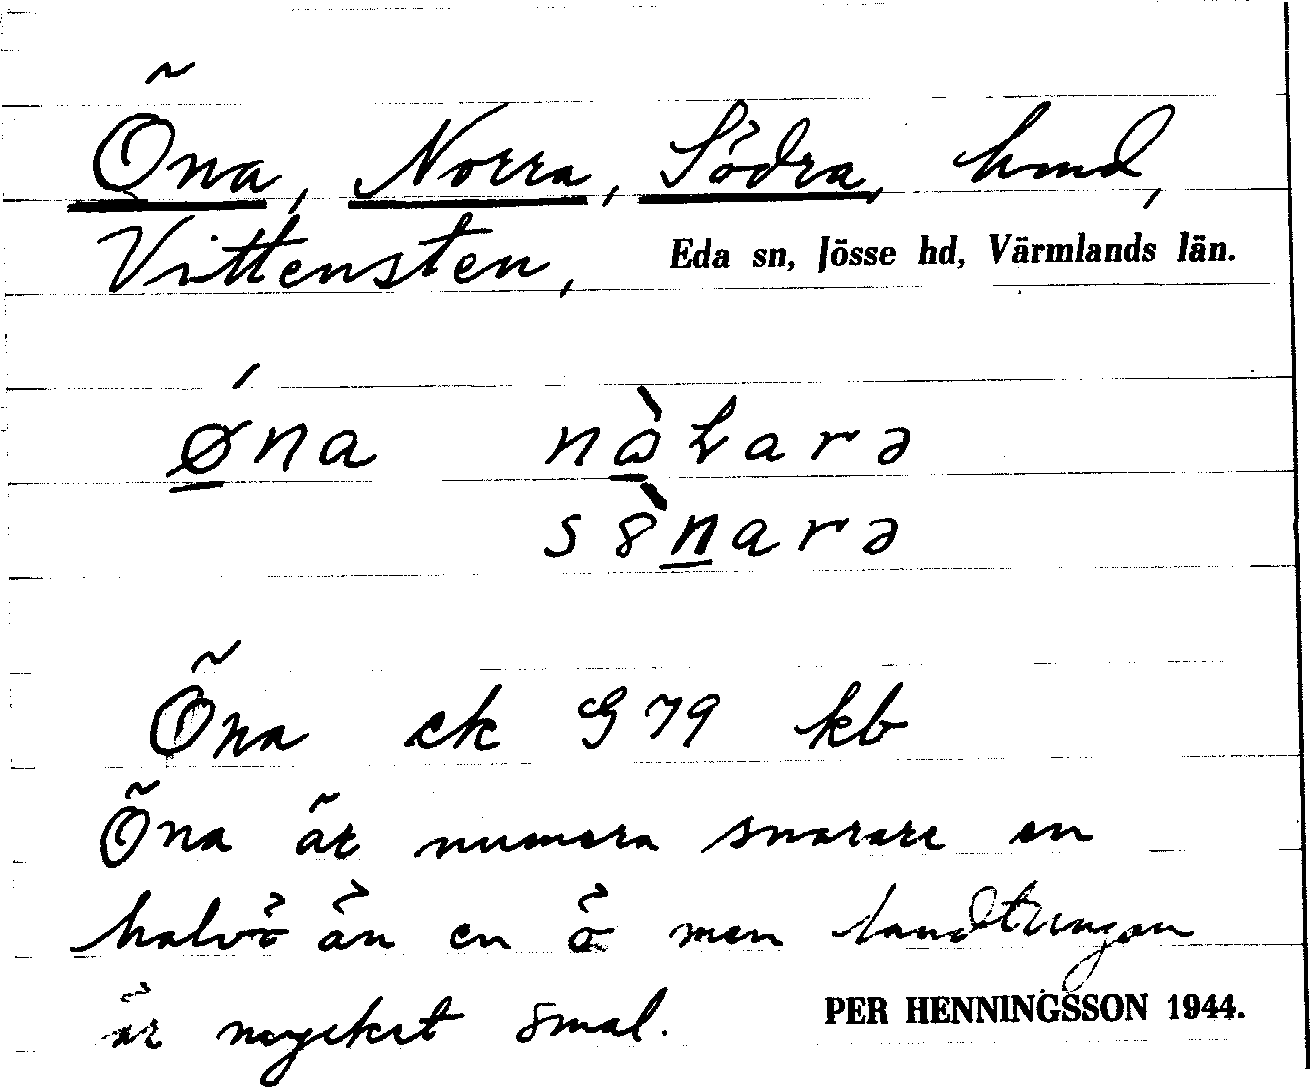 Öna, Norra, Södra, hmd,
Vittensten, Eda sn, Jösse hd, Värmlands län.
øna nòLarə
sönarə
Öna ek G 79 kb
Öna är numera snarare en
halvö än en ö men landtungan
är mycket smal.
PER HENNINGSSON 1944.